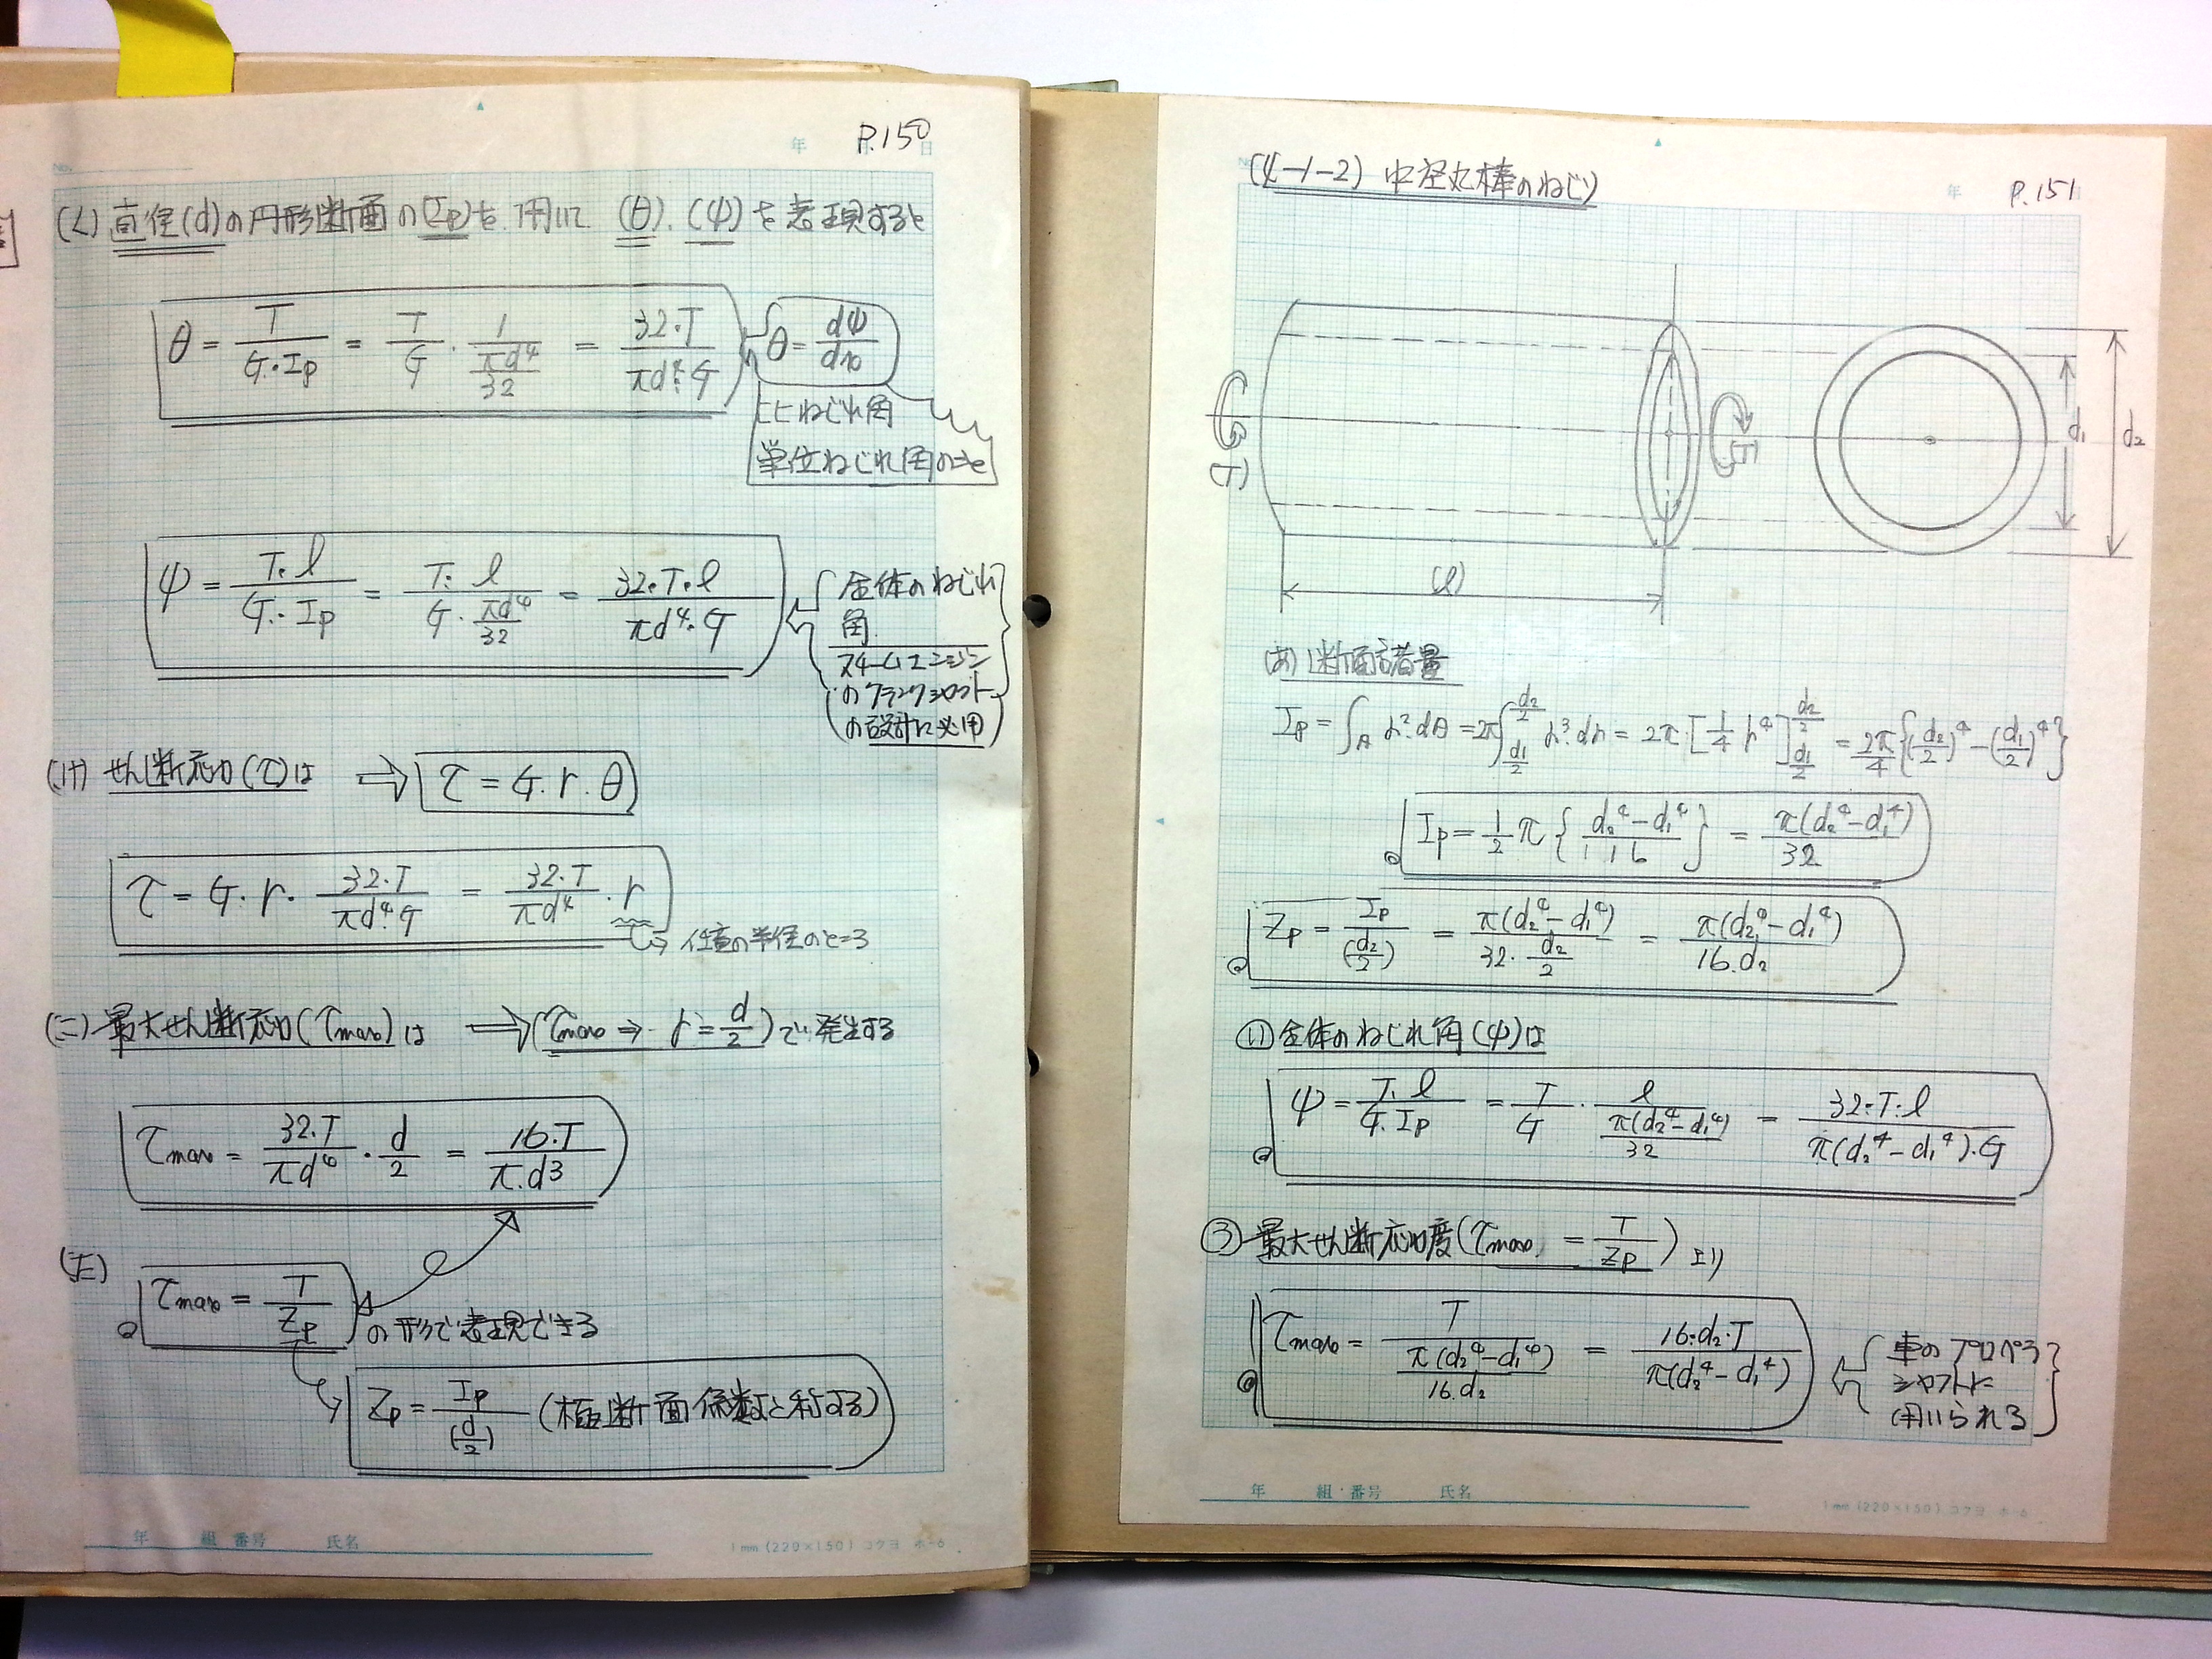 P.150
(く) 直径(d)の円形断面の(Ip)を用いて (θ). (ψ)を表現すると
θ = T/(G・Ip) = T/G ・ 1/(πd⁴/32) = 32・T/(πd⁴・G)
θ = dψ/dx
比ねじれ角
単位ねじれ角のこと
ψ = T・l/(G・Ip) = T・l/(G・πd⁴/32) = 32・T・l/(πd⁴・G)
全体のねじれ
角
スチームエンジン
のクランクシャフト
の設計に必用
(け) せん断応力(τ)は ⇒ τ = G・r・θ
τ = G・r・32・T/(πd⁴・G) = 32・T/(πd⁴)・r
任意の半径のところ
(こ) 最大せん断応力(τmax)は ⇒ (τmax ⇒ r = d/2)で発生する
τmax = 32・T/(πd⁴)・d/2 = 16・T/(π・d³)
τmax = T/Zp の形で表現できる
Zp = Ip/(d/2) (極断面係数と称する)
年 組 番号 氏名
1mm (220×150) コクヨ ホ-6
P.151
(4-1-2) 中空丸棒のねじり
年
(T)
d₁
d₂
(l)
(あ) 断面諸量
Ip = ∫A r²・dA = 2π∫(d₁/2→d₂/2) r³・dr = 2π[1/4 r⁴](d₁/2→d₂/2) = 2π/4{(d₂/2)⁴-(d₁/2)⁴}
Ip = 1/2 π{(d₂⁴-d₁⁴)/16} = π(d₂⁴-d₁⁴)/32
Zp = Ip/(d₂/2) = π(d₂⁴-d₁⁴)/(32・d₂/2) = π(d₂⁴-d₁⁴)/(16・d₂)
(い) 全体のねじれ角(ψ)は
ψ = T・l/(G・Ip) = T/G ・ l/(π(d₂⁴-d₁⁴)/32) = 32・T・l/(π(d₂⁴-d₁⁴)・G)
(う) 最大せん断応力度(τmax = T/Zp)より
τmax = T/(π(d₂⁴-d₁⁴)/(16・d₂)) = 16・d₂・T/(π(d₂⁴-d₁⁴))
車のプロペラ
シャフトに
用いられる
年 組・番号 氏名
1mm (220×150) コクヨ ホ-6